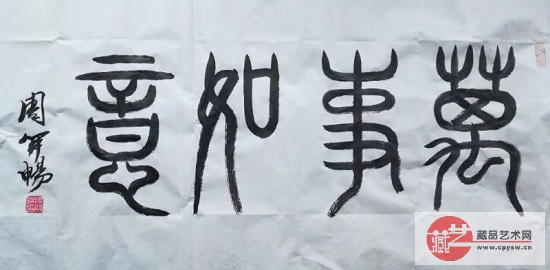 萬事如意
周軍暢
藏艺
藏品艺术网
www.cpysw.cn